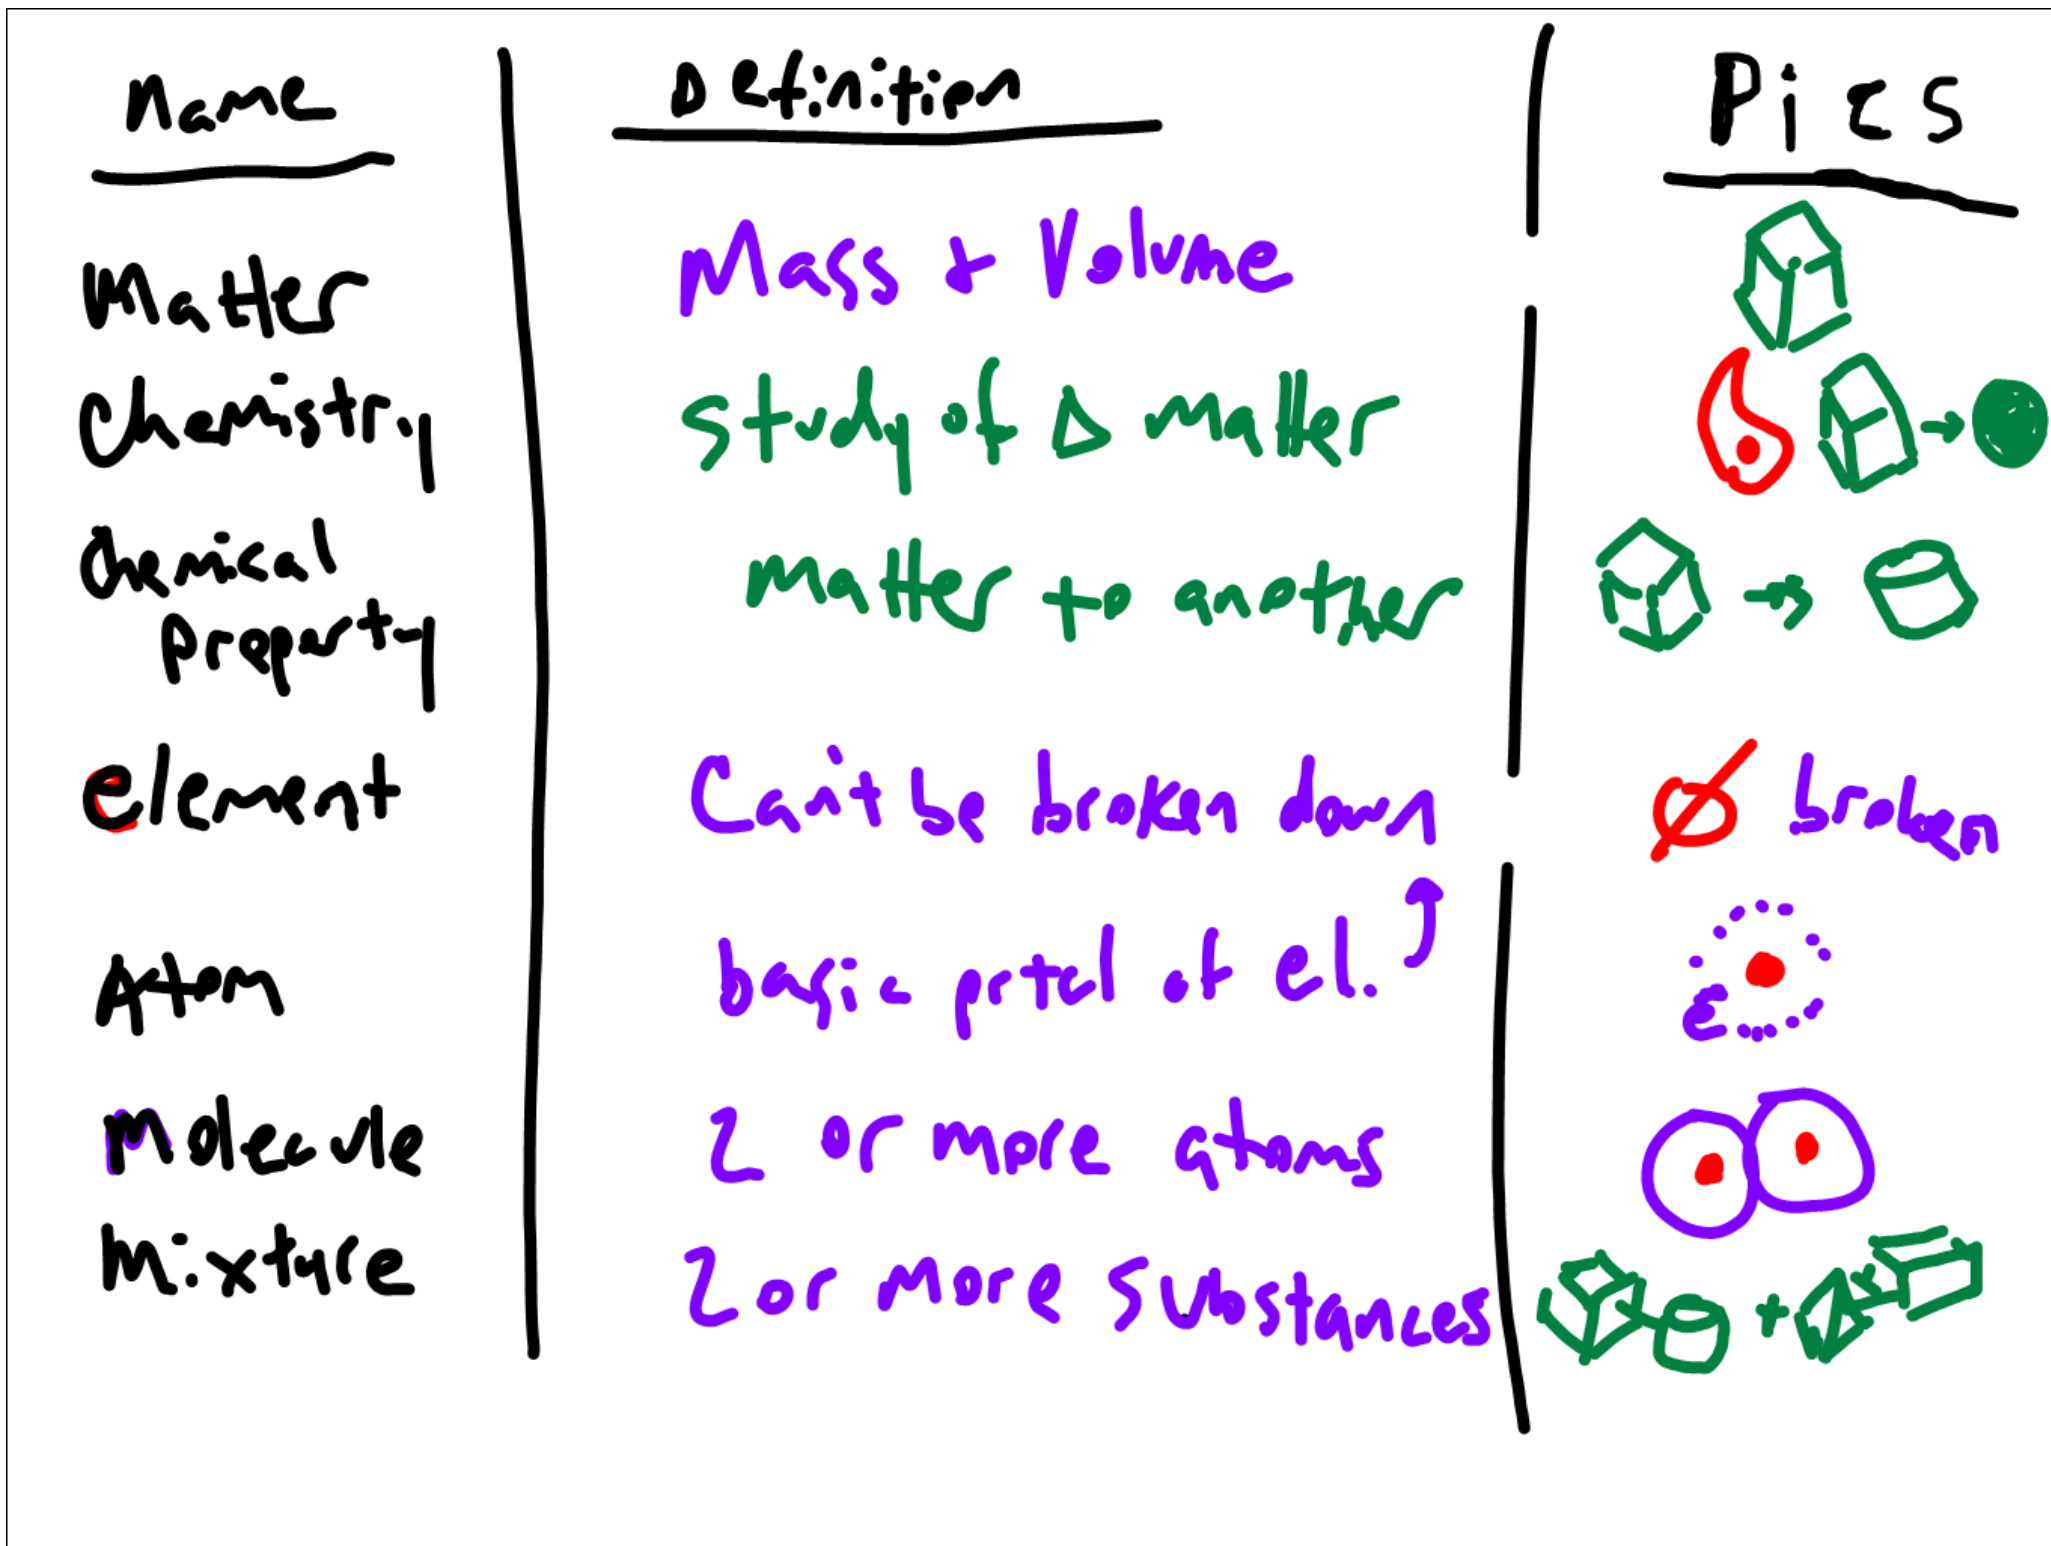 Name Definition Pics
Matter Mass + Volume
Chemistry Study of Δ matter
Chemical Matter to another
property
element Can't be broken down Ø broken
Atom basic prtcl of el. e
Molecule 2 or more atoms
Mixture 2 or more substances